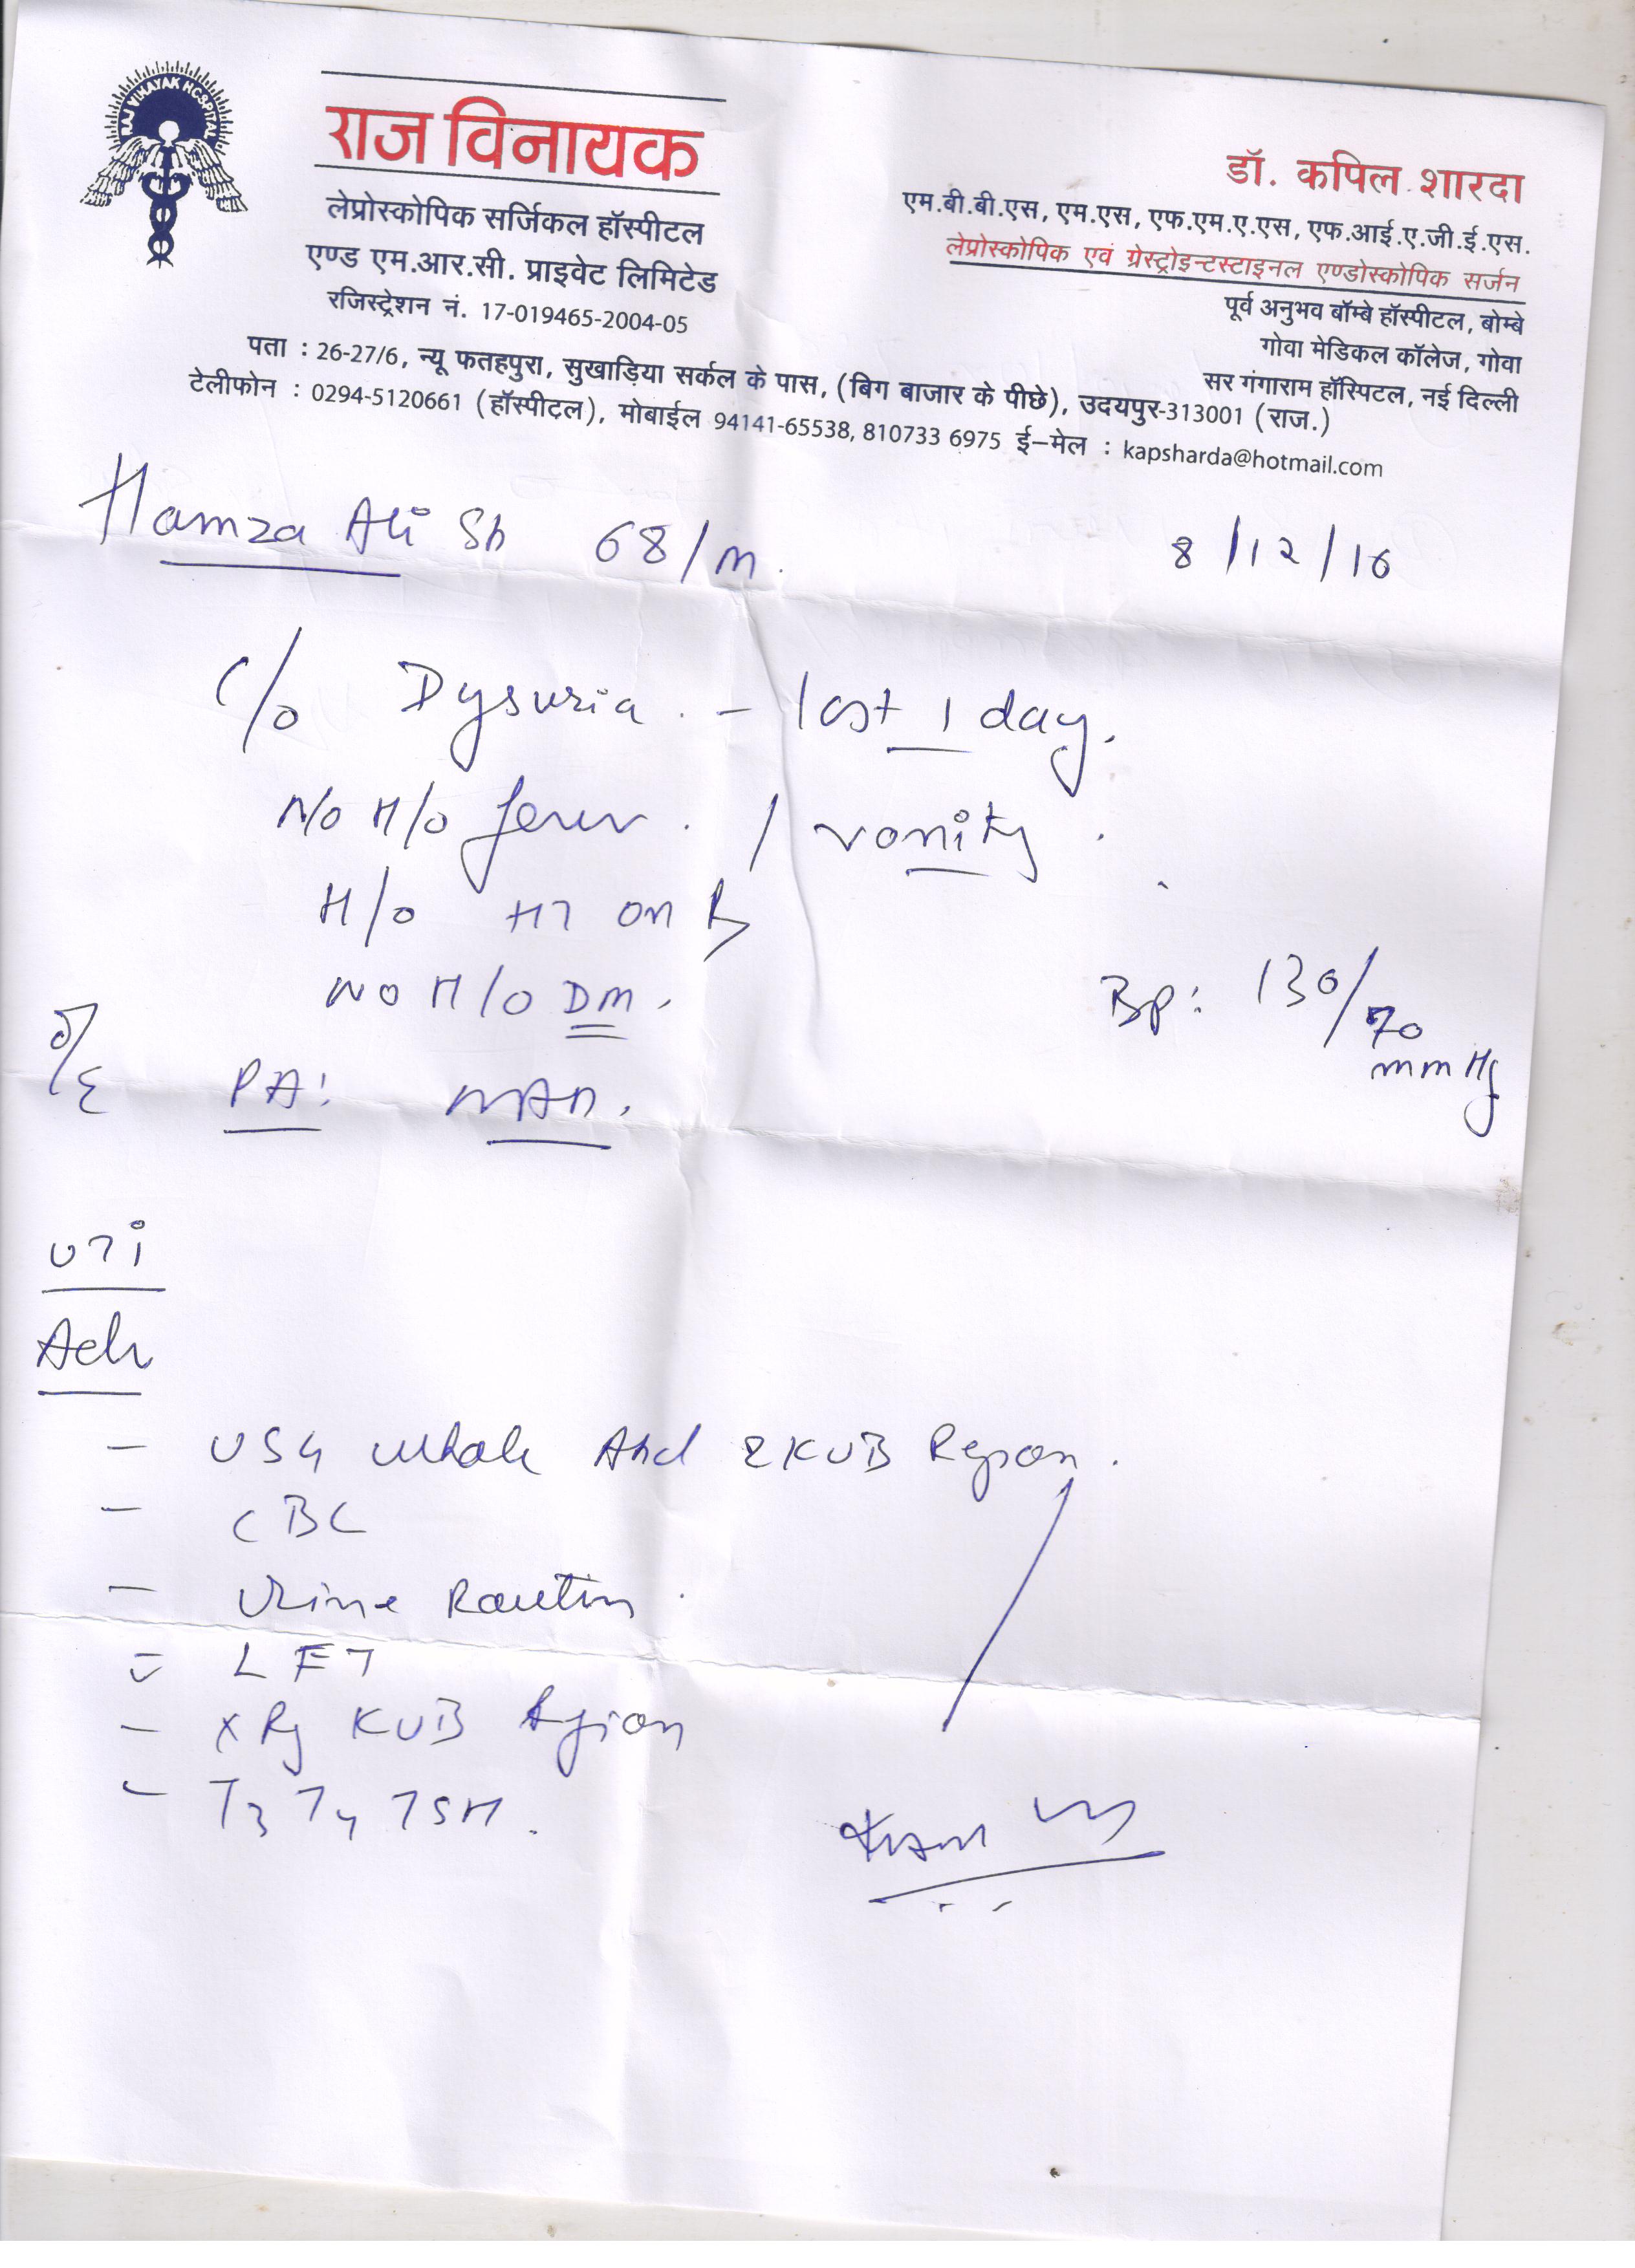 RAJ VINAYAK HOSPITAL
राज विनायक
लेप्रोस्कोपिक सर्जिकल हॉस्पीटल
एण्ड एम.आर.सी. प्राइवेट लिमिटेड
रजिस्ट्रेशन नं. 17-019465-2004-05
डॉ. कपिल शारदा
एम.बी.बी.एस, एम.एस, एफ.एम.ए.एस, एफ.आई.ए.जी.ई.एस.
लेप्रोस्कोपिक एवं ग्रेस्ट्रोइन्टस्टाइनल एण्डोस्कोपिक सर्जन
पूर्व अनुभव बॉम्बे हॉस्पीटल, बोम्बे
गोवा मेडिकल कॉलेज, गोवा
सर गंगाराम हॉस्पिटल, नई दिल्ली
पता : 26-27/6, न्यू फतहपुरा, सुखाड़िया सर्कल के पास, (बिग बाजार के पीछे), उदयपुर-313001 (राज.)
टेलीफोन : 0294-5120661 (हॉस्पीट्ल), मोबाईल 94141-65538, 810733 6975 ई-मेल : kapsharda@hotmail.com
Hamza Ali Sh 68/m. 8/12/16
C/o Dysuria. - last 1 day.
N/O H/O fever. / vomity.
H/O HT on Rx
NO H/O DM.
BP: 130/70 mmHg
O/E PA: NAD.
UTI
Adv
- USG whole Abd & KUB Region.
- CBC
- Urine Routin
- LFT
- X Ry KUB Region
- T3 T4 TSH.